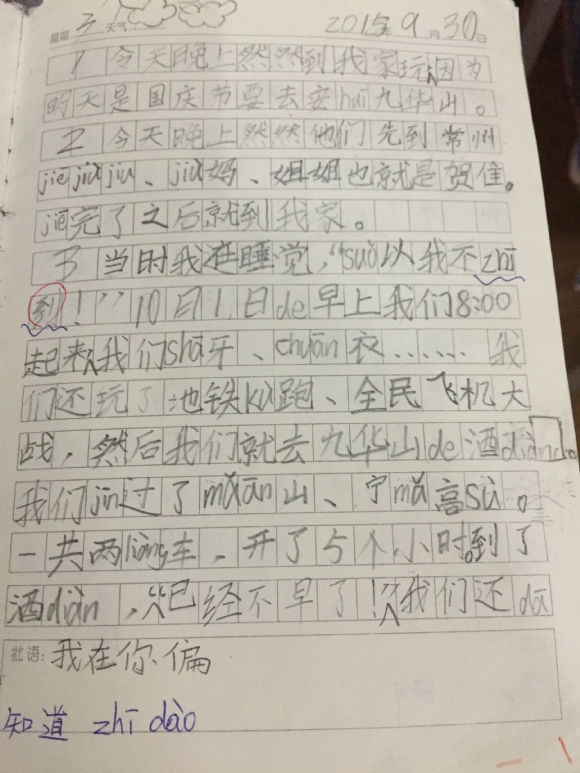 星期 三 天气 2015年9月30日
1 今天晚上然然到我家玩,因为
明天是国庆节要去安huī九华山。
2 今天晚上然然他们先到常州
jiē jiù jiu、jiù妈、姐姐也就是贺佳。
jiē完了之后就到我家。
3 当时我在睡觉,“suǒ以我不zhī
到!”10月1日de早上我们8:00
起来,我们shā牙、chuān衣……我
们还玩了地铁kù跑、全民飞机大
战,然后我们就去九华山de酒diàn。
我们jīn过了mǎ ān山、宁mǎ高sù。
一共两liàng车,开了5个小时。到了
酒diàn,“已经不早了!”我们还dā
批语: 我在你偏
知道 zhī dào